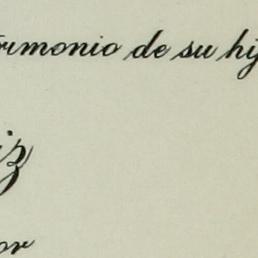 trimonio de su hij
iz
or